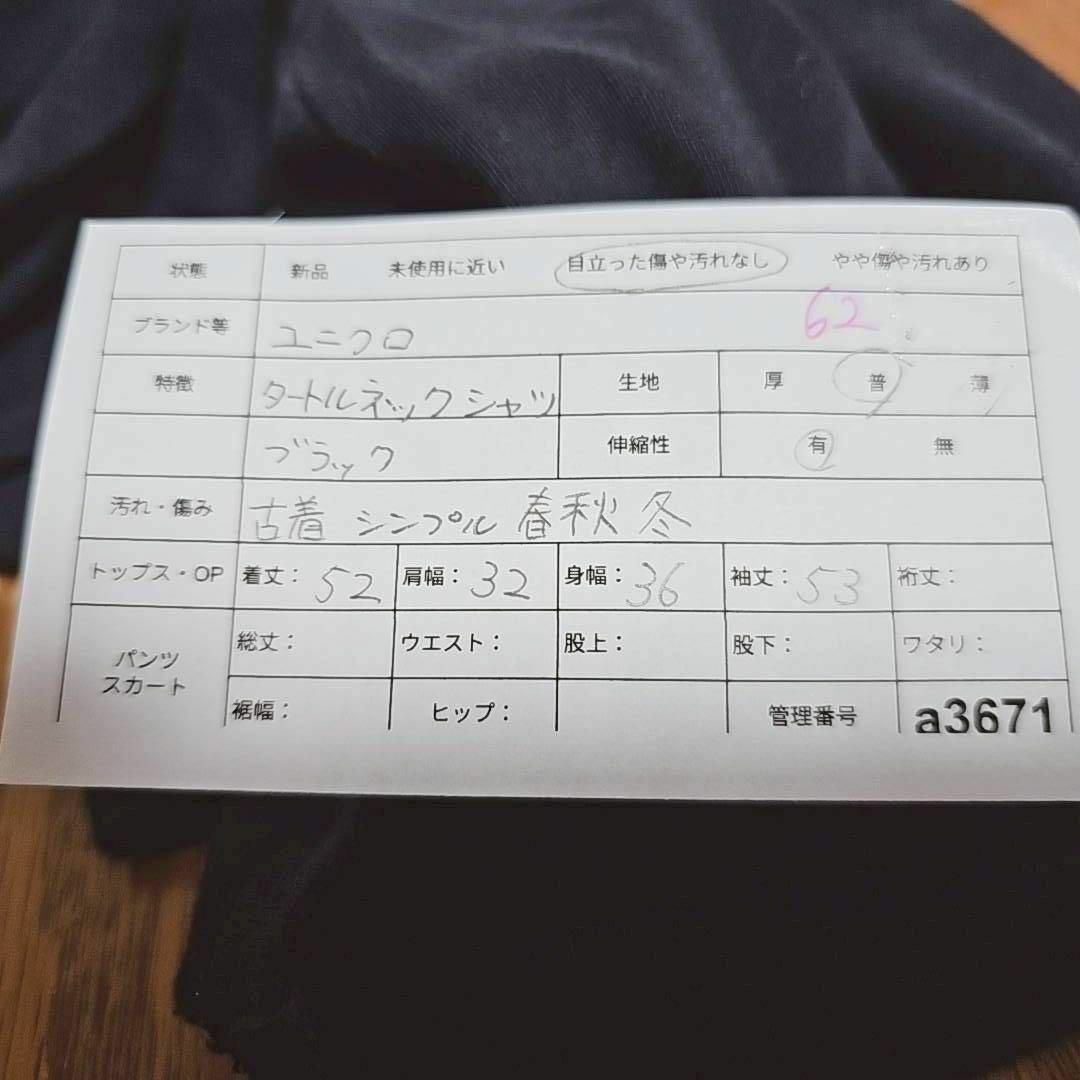 状態 新品 未使用に近い 目立った傷や汚れなし やや傷や汚れあり
ブランド等 ユニクロ 62
特徴 タートルネックシャツ 生地 厚 普 薄
ブラック 伸縮性 有 無
汚れ・傷み 古着 シンプル 春秋冬
トップス・OP 着丈: 52 肩幅: 32 身幅: 36 袖丈: 53 裄丈:
パンツ スカート 総丈: ウエスト: 股上: 股下: ワタリ:
裾幅: ヒップ: 管理番号 a3671